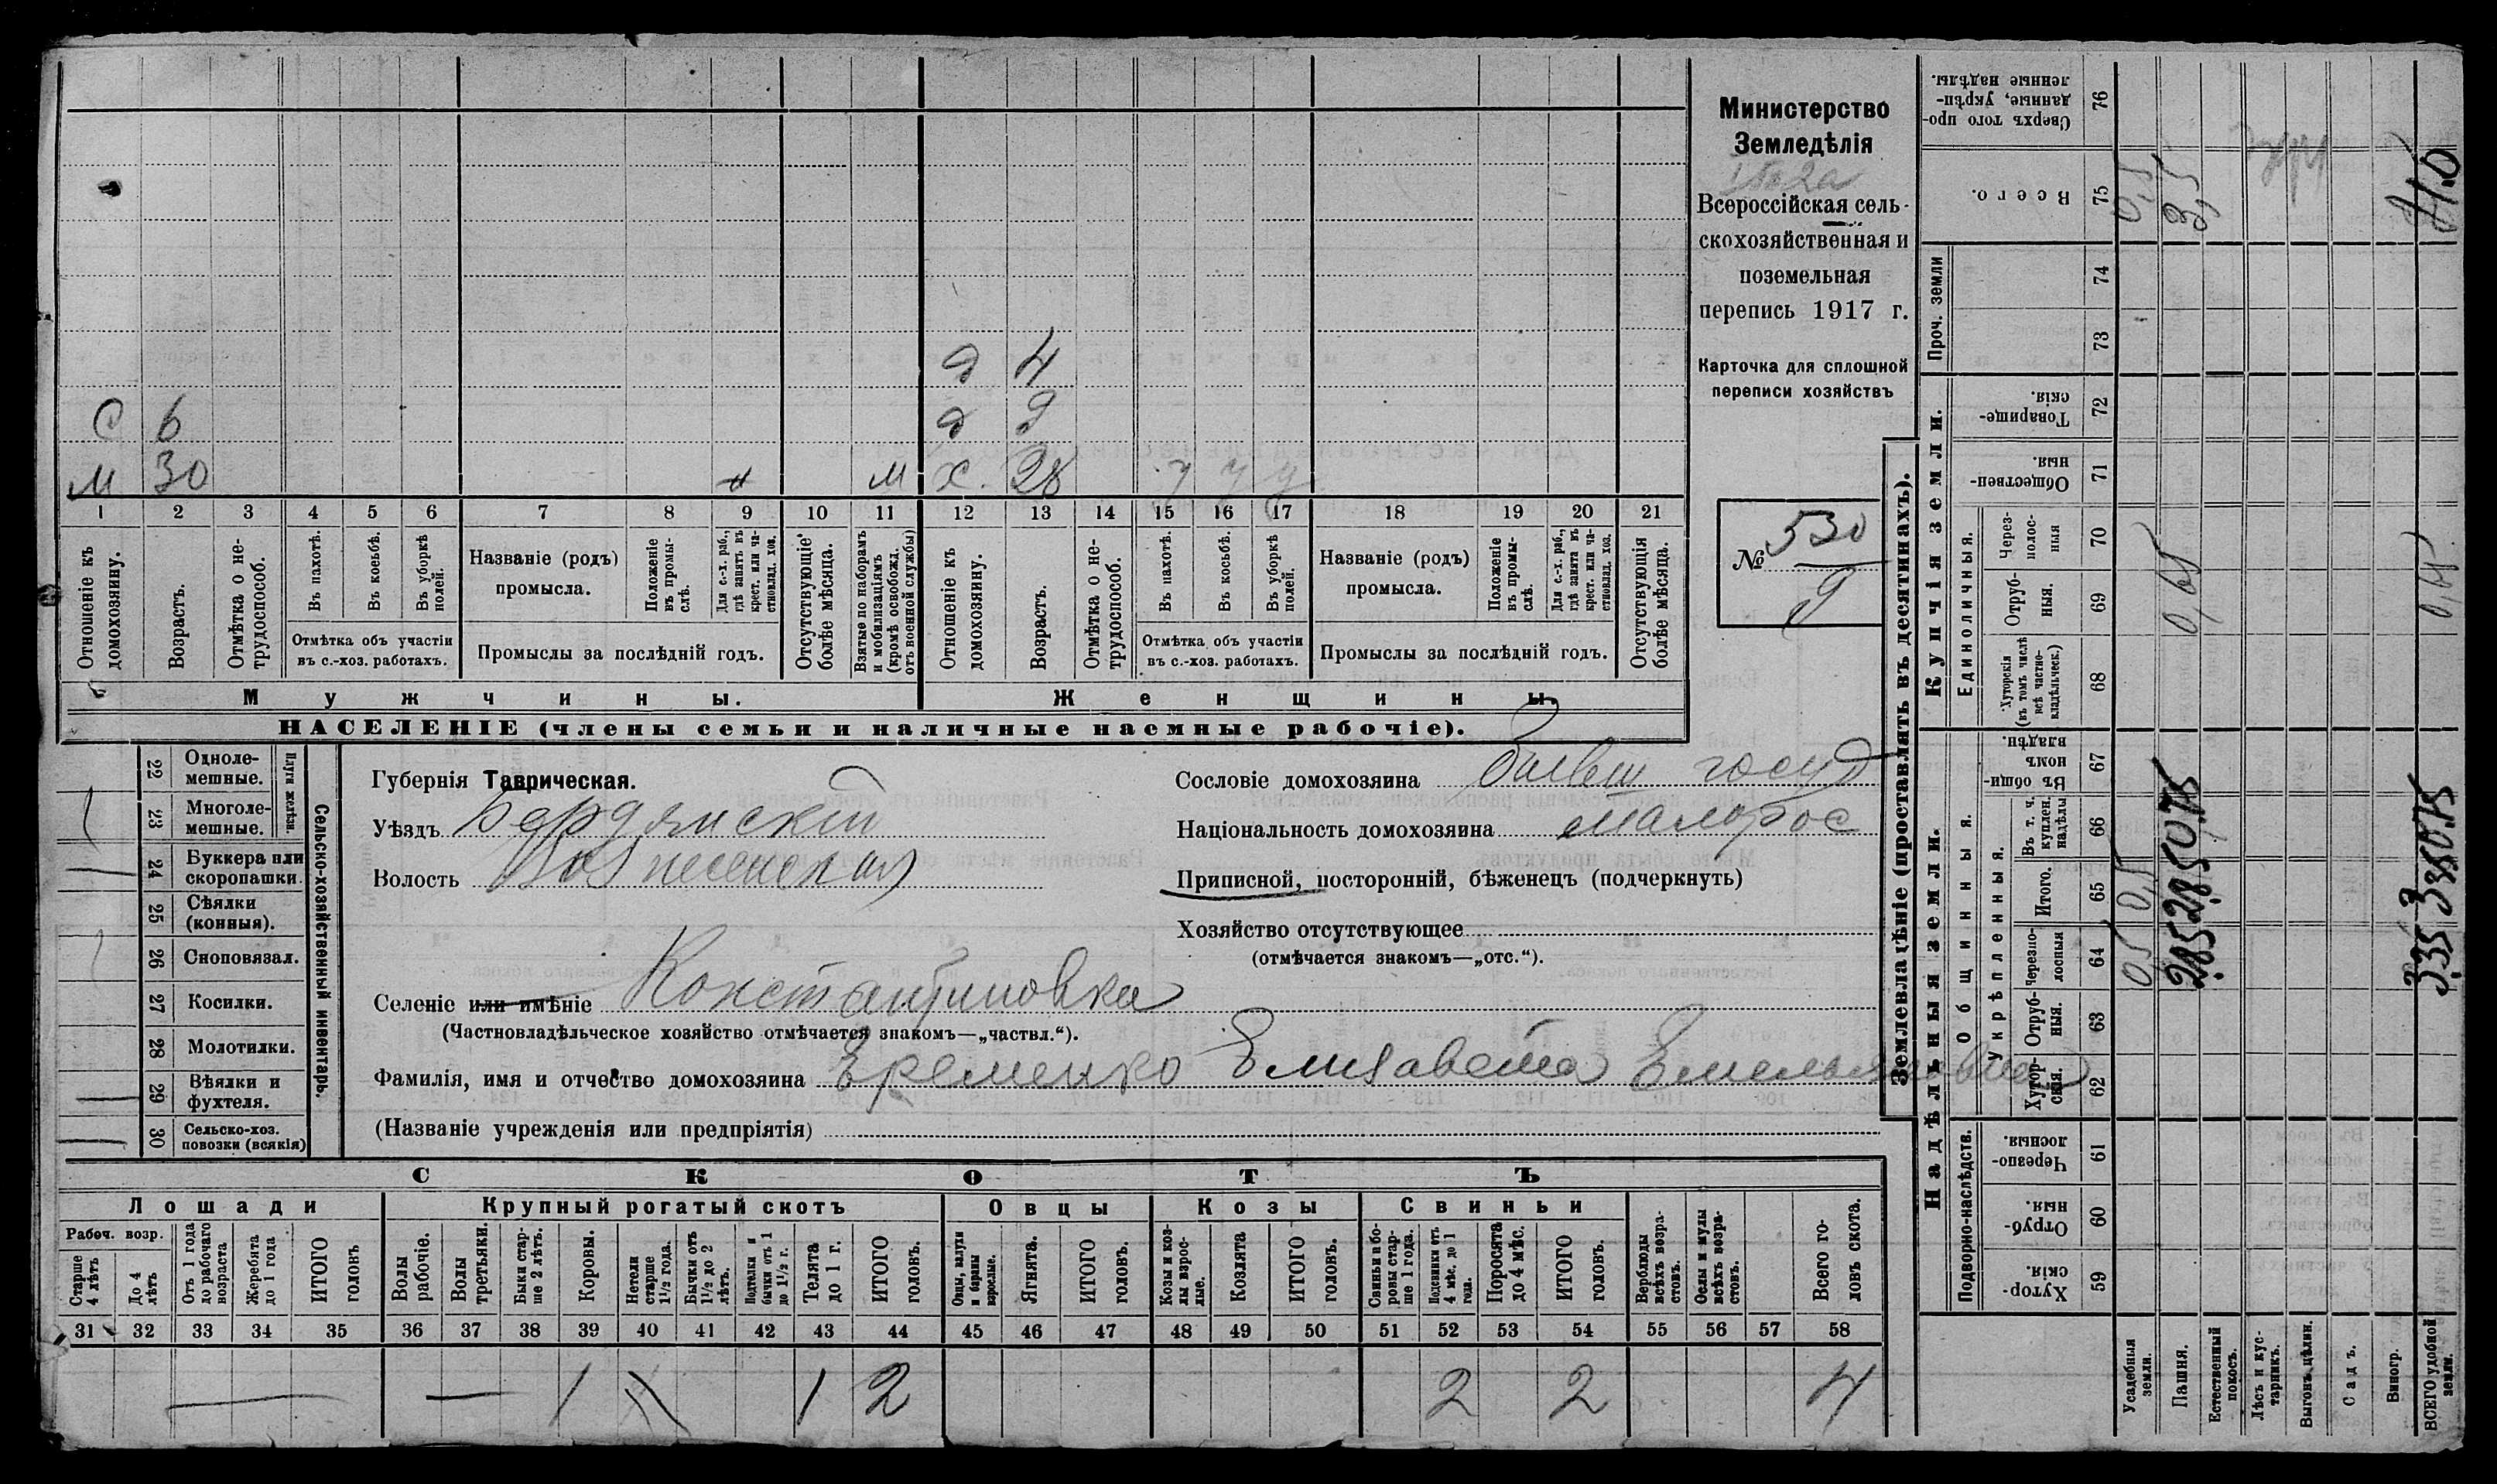 Министерство
Земледѣлія
Всероссійская сель-
скохозяйственная и
поземельная
перепись 1917 г.
Карточка для сплошной
переписи хозяйствъ
№ 530
9
д 4
С 6 д 9
м 30 м х. 28 у у у
1 2 3 4 5 6 7 8 9 10 11 12 13 14 15 16 17 18 19 20 21
Отношеніе къ домохозяину.
Возрастъ.
Отмѣтка о не-трудоспособ.
Въ пахотѣ.
Въ косьбѣ.
Въ уборкѣ полей.
Отмѣтка объ участіи
въ с.-хоз. работахъ.
Названіе (родъ)
промысла.
Положеніе въ промы-слѣ.
Для с.-х. раб., гдѣ занятъ въ крест. или ча-стновлад. хоз.
Промыслы за послѣдній годъ.
Отсутствующіе болѣе мѣсяца.
Взятые по наборамъ и мобилизаціямъ (кромѣ освобожд. отъ военной службы)
Отношеніе къ домохозяину.
Возрастъ.
Отмѣтка о не-трудоспособ.
Въ пахотѣ.
Въ косьбѣ.
Въ уборкѣ полей.
Отмѣтка объ участіи
въ с.-хоз. работахъ.
Названіе (родъ)
промысла.
Положеніе въ промы-слѣ.
Для с.-х. раб., гдѣ занята въ крест. или ча-стновлад. хоз.
Промыслы за послѣдній годъ.
Отсутствующія болѣе мѣсяца.
Мужчины. Женщины.
НАСЕЛЕНІЕ (члены семьи и наличные наемные рабочіе).
Сельско-хозяйственный инвентарь.
Плуги желѣзн.
22 Одноле-мешные.
23 Многоле-мешные.
24 Буккера или скоропашки.
25 Сѣялки (конныя).
26 Сноповязал.
27 Косилки.
28 Молотилки.
29 Вѣялки и фухтеля.
30 Сельско-хоз. повозки (всякія)
Губернія Таврическая.
Уѣздъ Бердянскій
Волость Вознесенская
Сословіе домохозяина бывш госуд
Національность домохозяина малорос
Приписной, посторонній, бѣженецъ (подчеркнуть)
Хозяйство отсутствующее
(отмѣчается знакомъ—„отс.“).
Селеніе или имѣніе Константиновка
(Частновладѣльческое хозяйство отмѣчается знакомъ—„частвл.“).
Фамилія, имя и отчество домохозяина Еременко Елизавета Емельяновна
(Названіе учрежденія или предпріятія)
СКОТЪ
Лошади Крупный рогатый скотъ Овцы Козы Свиньи
Рабоч. возр.
Старше 4 лѣтъ
До 4 лѣтъ
Отъ 1 года до рабочаго возраста
Жеребята до 1 года
ИТОГО головъ
Волы рабочіе.
Волы третьяки.
Быки стар-ше 2 лѣтъ.
Коровы.
Нетели старше 1½ года.
Бычки отъ 1½ до 2 лѣтъ.
Подтелки и бычки отъ 1 до 1½ г.
Телята до 1 г.
ИТОГО головъ.
Овцы, валухи и бараны взрослые.
Ягнята.
ИТОГО головъ.
Козы и коз-лы взрос-лые.
Козлята
ИТОГО головъ.
Свиньи и бо-ровы стар-ше 1 года.
Подсвинки отъ 4 мѣс. до 1 года.
Поросята до 4 мѣс.
ИТОГО головъ.
Верблюды всѣхъ возра-стовъ.
Ослы и мулы всѣхъ возра-стовъ.
Всего го-ловъ скота.
31 32 33 34 35 36 37 38 39 40 41 42 43 44 45 46 47 48 49 50 51 52 53 54 55 56 57 58
1 1 2 2 2 4
Землевладѣніе (проставлять въ десятинахъ).
Надѣльныя земли. Купчія земли. Проч. земли
Подворно-наслѣдств.
Общинныя.
Укрѣпленныя.
Единоличныя.
Хутор-скія. 59
Отруб-ныя. 60
Черезпо-лосныя. 61
Хутор-скія. 62
Отруб-ныя. 63
Черезпо-лосныя 64
Итого. 65
Въ т. ч. куплен. надѣлы 66
Въ общин-номъ владѣн. 67
Хуторскія (въ томъ числѣ всѣ частно-владѣльческ.) 68
Отруб-ныя. 69
Через-полос-ныя 70
Обществен-ныя. 71
Товарище-скія. 72
73
74
Всего. 75
Сверхъ того про-данные, укрѣп-ленные надѣлы. 76
Усадебныя земли. 0,5
Пашня. 0,65
Естественный покосъ.
Лѣсъ и кус-тарникъ.
Выгонъ, цѣлин.
Садъ.
Виногр.
ВСЕГО удобной земли. 0,65